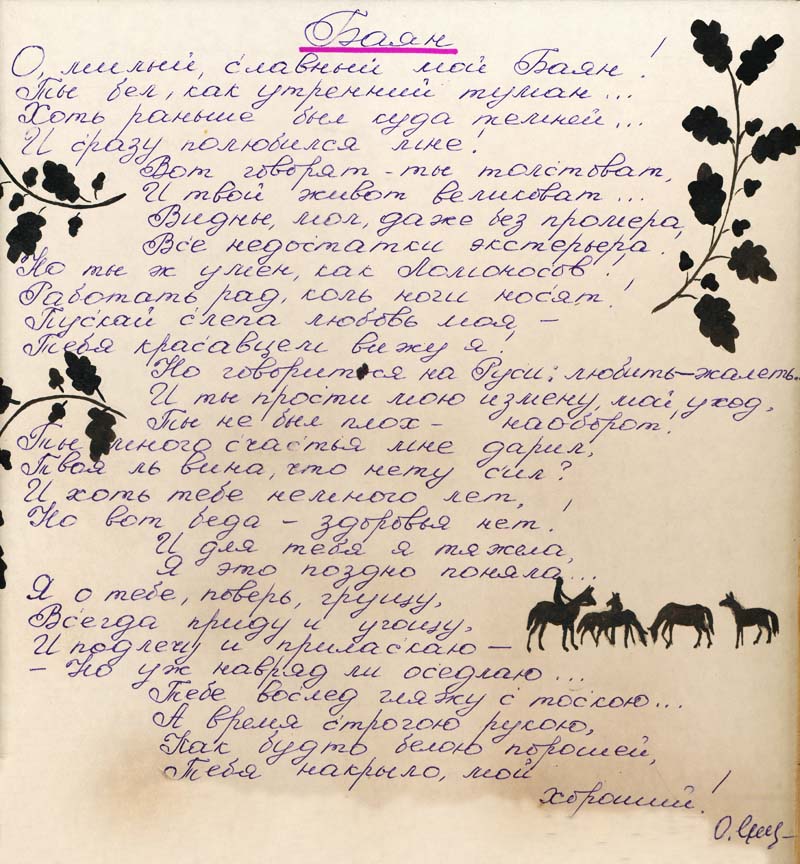 Баян
О, милый, славный мой Баян!
Ты бел, как утренний туман...
Хоть раньше был куда темней...
И сразу полюбился мне!
Вот говорят - ты толстоват,
И твой живот великоват...
Видны, мол, даже без промера,
Все недостатки экстерьера.
Но ты ж умен, как Ломоносов!
Работать рад, коль ноги носят!
Пускай слепа любовь моя, -
Тебя красавцем вижу я!
Но говорится на Руси: любить-жалеть...
И ты прости мою измену, мой уход,
Ты не был плох - наоборот!
Ты много счастья мне дарил,
Твоя ль вина, что нету сил?
И хоть тебе немного лет,
Но вот беда - здоровья нет!
И для тебя я тяжела,
Я это поздно поняла...
Я о тебе, поверь, грущу,
Всегда приду и угощу,
И подлечу и приласкаю -
- Но уж навряд ли оседлаю...
Тебе вослед гляжу с тоскою...
А время строгою рукою,
Как будто белою порошей,
Тебя накрыло, мой
хороший!
О.